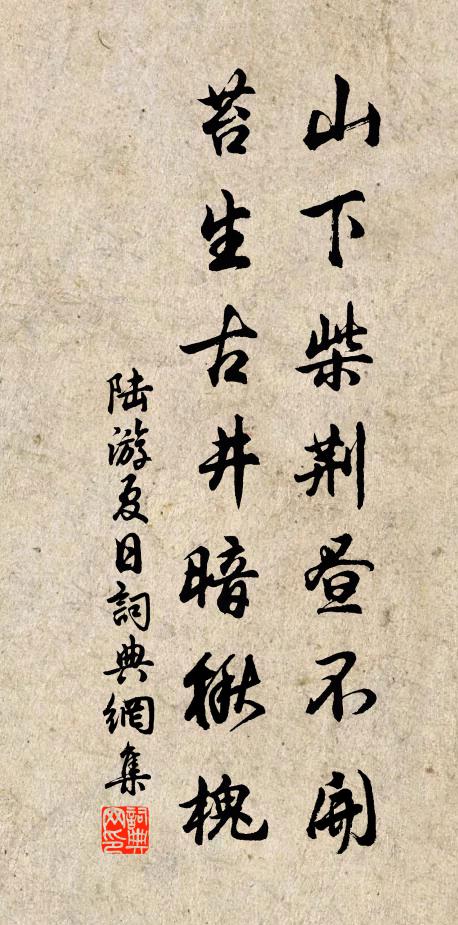 山下柴荆昼不開
苔生古井暗楸槐
陆游夏日詞典網集
詞典网印